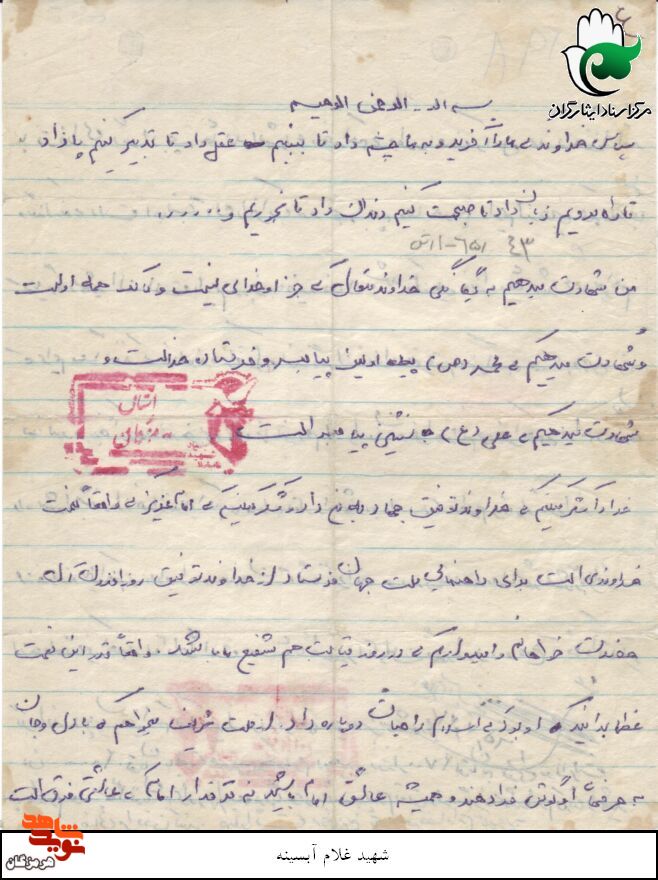 مرکز اسناد ایثارگران
بسم الله الرحمن الرحیم
سپاس خداوندی ما را آفرید و به ما چشم داد تا ببینیم عقل داد تا تدبیر کنیم پا داد
تا راه برویم زبان داد تا صحبت کنیم دندان داد تا بخوریم و
٤٣
من شهادت میدهیم به یگانگی خداوند متعال که جز او خدای نیست و
و شهادت میدهیم که محمد (ص) اولین پیامبر و فرستاده خداست و
شهادت میدهیم که علی (ع) جانشین پیامبر است
ارسال به مرکز
خدا را شکر میکنم که خداوند توفیق جهاد به من داد و شکر میکنم که امام عزیز که واقعاً نعمت
خداوندی است برای راهنمایی ملت جهان فرستاد از خداوند توفیق روز افزون آن
حضرت خواهانم و امیدوارم که در روز قیامت هم شفیع ما باشد. واقعاً قدر این نعمت
عظما بدانید که او بود که اسلام را حیات دوباره داد. از ملت شریف میخواهم که با دل و جان
به حرفهای او گوش فرا دهند و همیشه عاشق امام باشید نه طرفدار امام که عاشق فوق است
نوید شاهد
هرمزگان
شهید غلام آبسینه